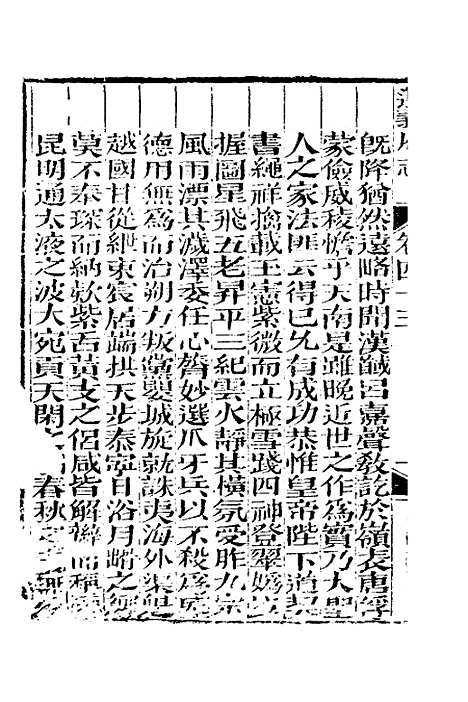 遵義府志 卷四十三
旣降猶然遠略時聞漢馘呂嘉聲敎訖於嶺表唐俘
蒙儉威稜憺乎天南是雖晚近世之作爲實乃大聖
人之家法匪云得已允有成功恭惟皇帝陛下道契
書繩祥摛載玉憲紫微而立極雪踐四神登翠嬀以
握圖星飛五老昇平三紀雲火靜其橫氛受胙九宗
風雨漂其濊澤委任心膂妙選爪牙兵以不殺爲威
德用無爲而治朔方叛黨嬰城旋就誅夷海外渠魁
越國甘從紲束宸居端拱天步泰寧自浴月䠶之
莫不奉琛而納欵紫舌黃支之侶咸皆解辮而稱
昆明通太液之波大宛貢天閑之 春秋之